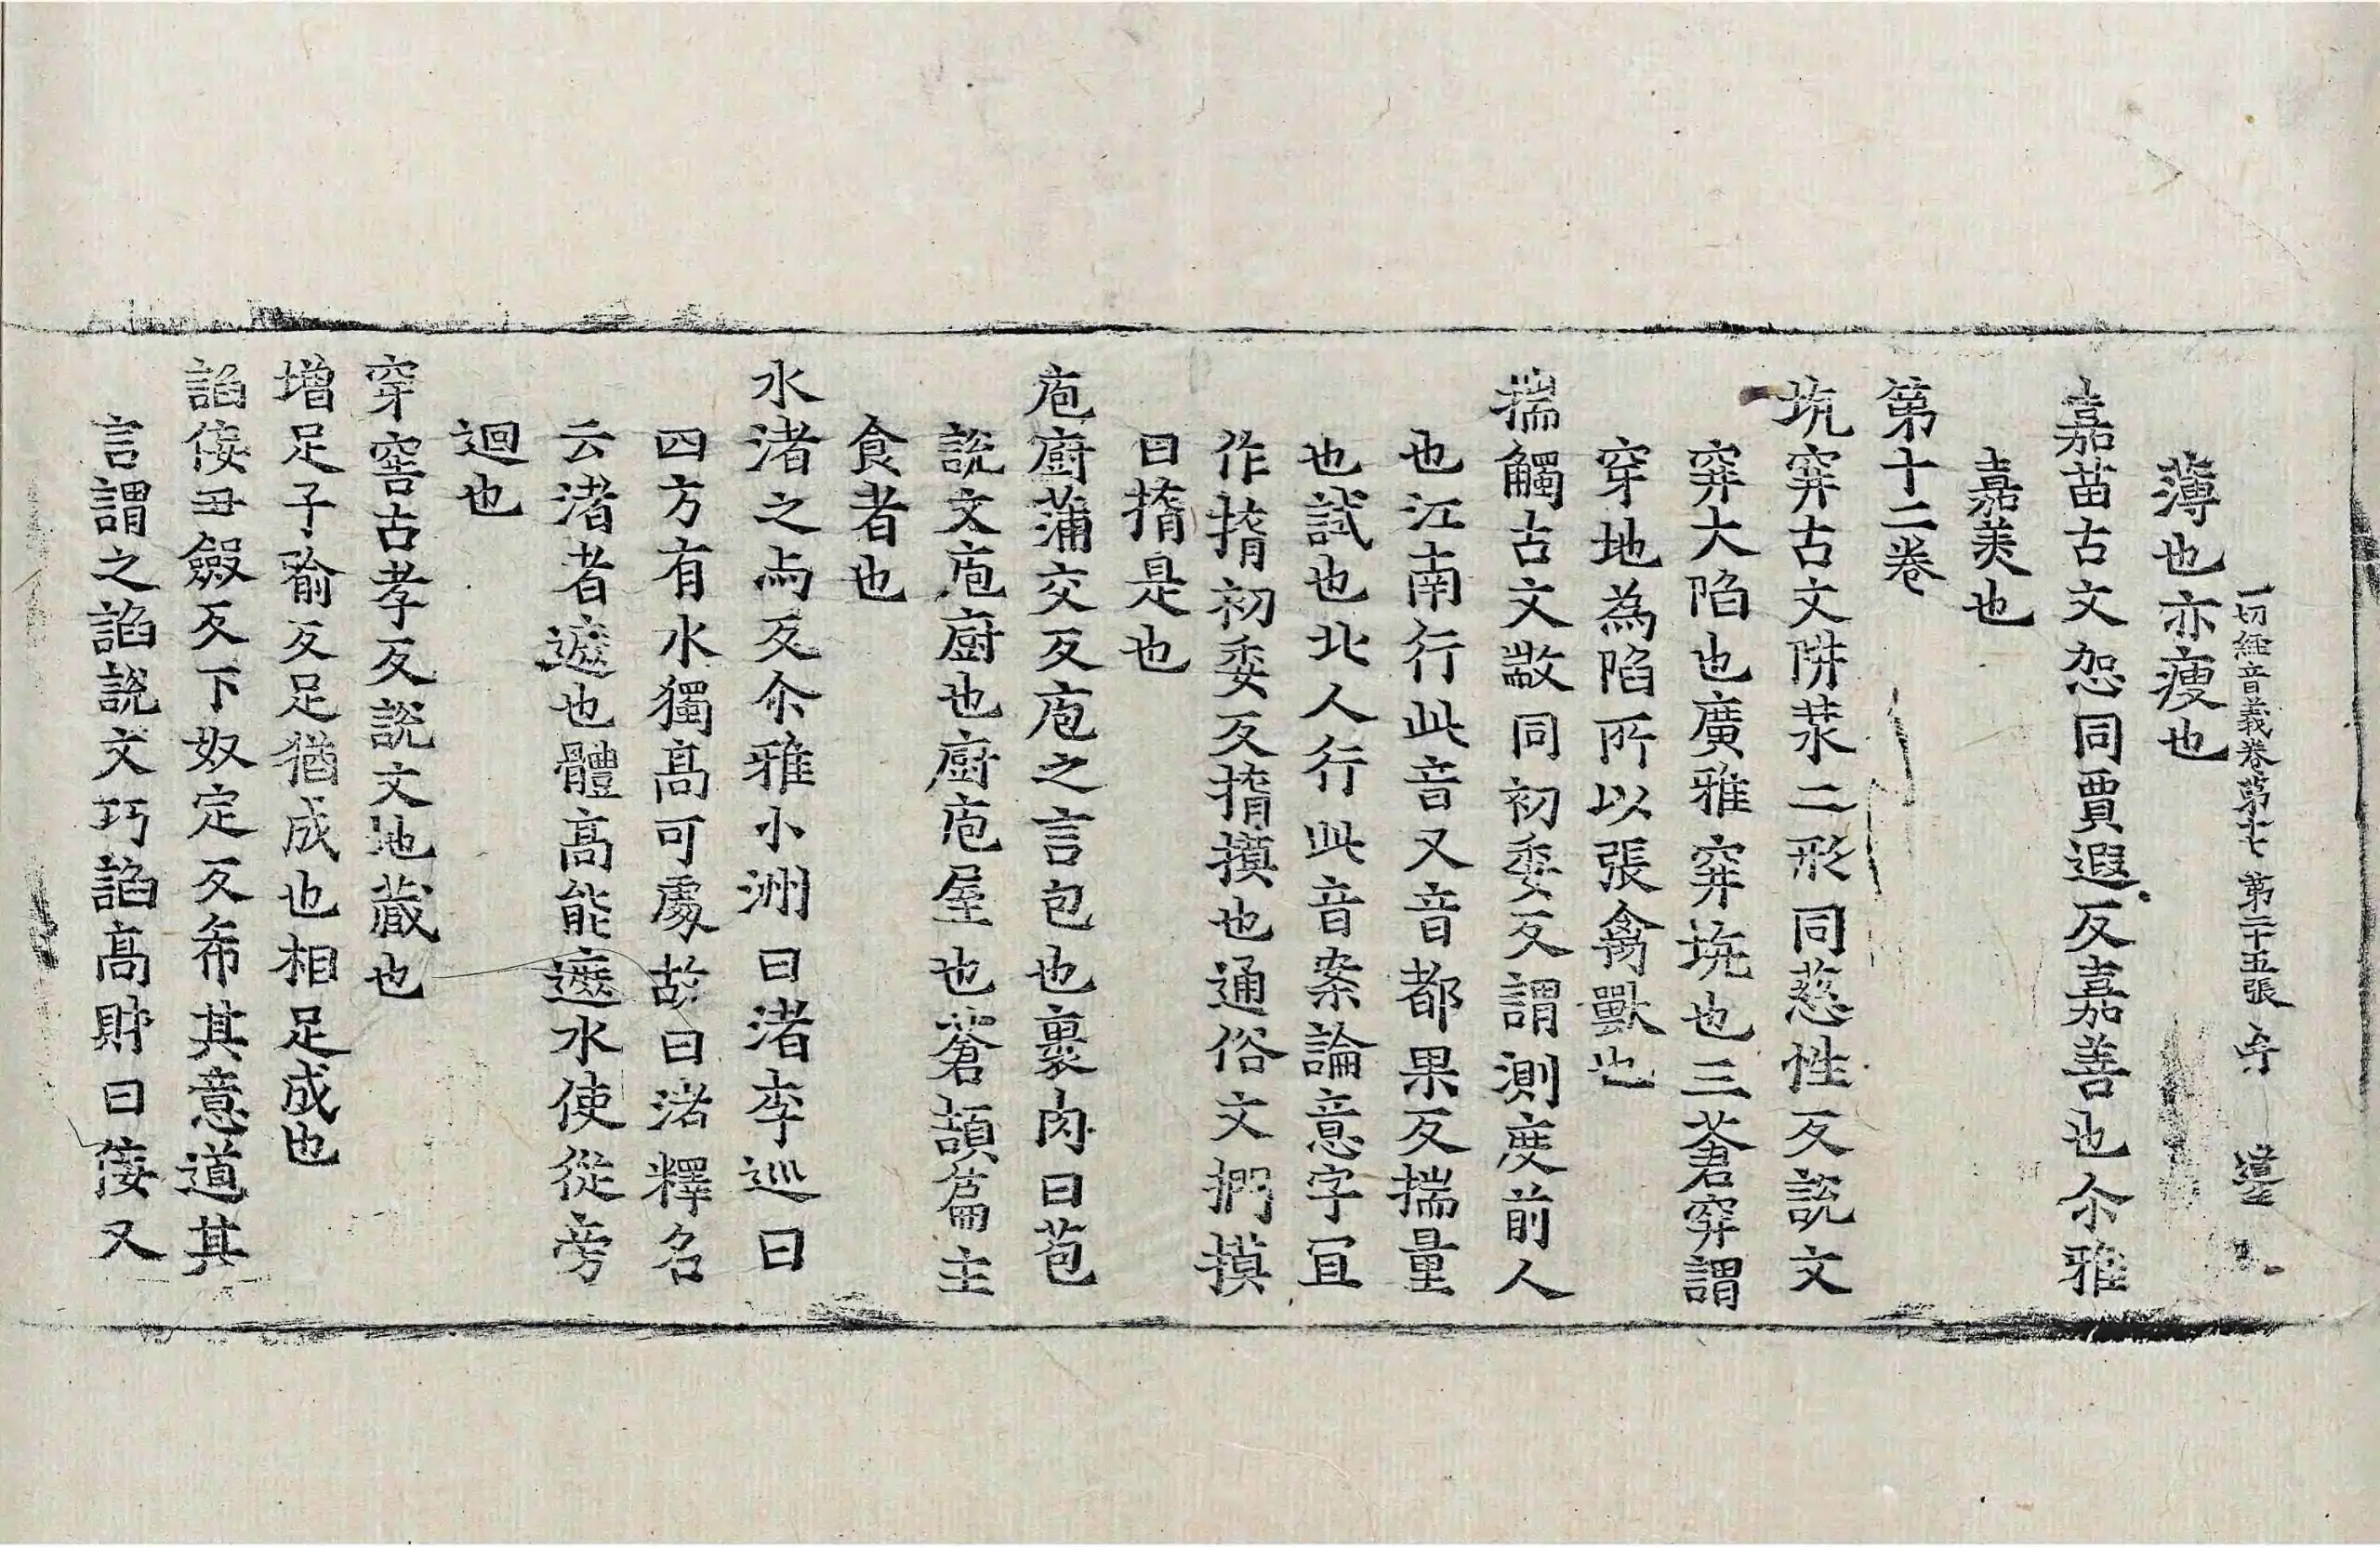 一切經音義卷第十七 第二十五張
薄也亦瘦也
嘉苗古文恕同賈遐反嘉善也尒雅
嘉美也
第十二卷
坑穽古文阱汬二形同慈性反說文
穽大陷也廣雅穽坑也三蒼穽謂
穿地為陷所以張禽獸也
揣觸古文敳同初委反謂測度前人
也江南行此音又音都果反揣量
也試也北人行此音案論意字冝
作揹初委反揹摸也通俗文捫摸
曰揹是也
庖廚蒲交反庖之言包也裹肉曰苞
說文庖廚也廚庖屋也蒼頡篇主
食者也
水渚之与反尒雅小洲曰渚李巡曰
四方有水獨髙可處故曰渚釋名
云渚者遮也體髙能遮水使從旁
迴也
穿窖古孝反說文地藏也
增足子瑜反足猶成也相足成也
諂佞丑斂反下奴定反希其意道其
言謂之諂說文巧諂髙財曰佞又